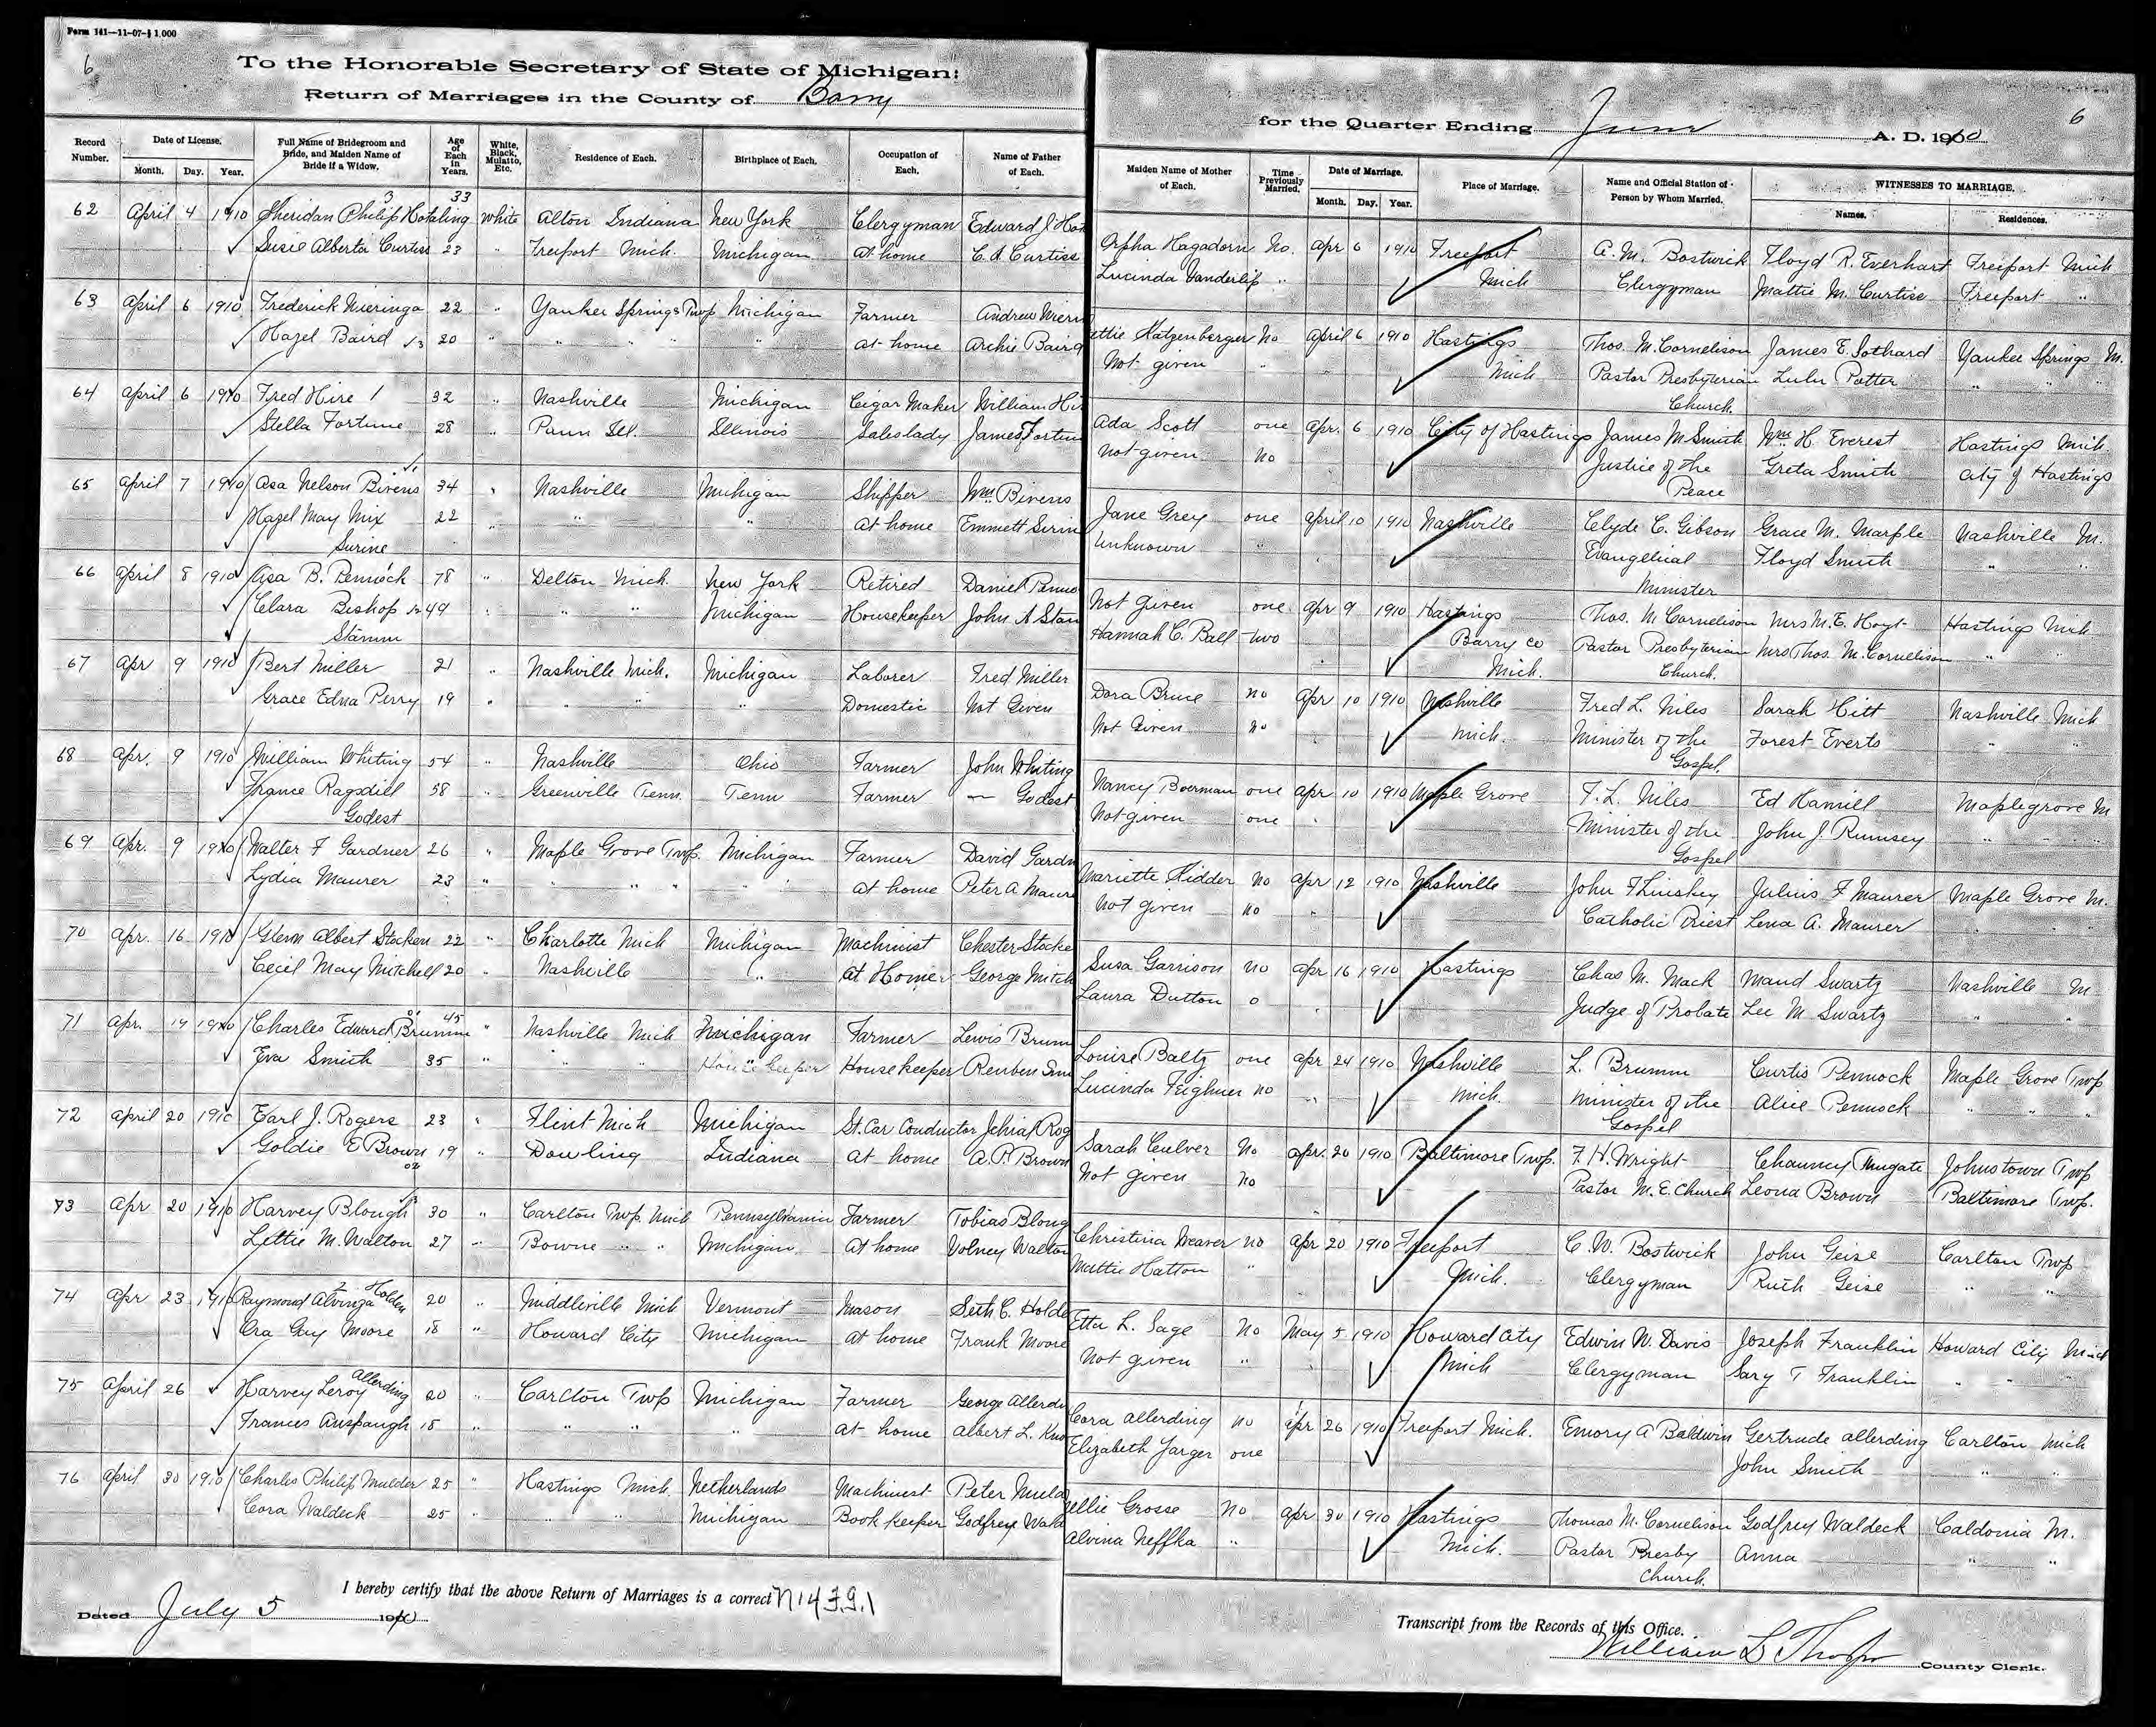 Form 141—11-07-1,000
6
To the Honorable Secretary of State of Michigan:
Return of Marriages in the County of Barry
for the Quarter Ending June A. D. 1910
6
Record Number. Date of License. Month. Day. Year. Full Name of Bridegroom and Bride, and Maiden Name of Bride if a Widow. Age of Each in Years. White, Black, Mulatto, Etc. Residence of Each. Birthplace of Each. Occupation of Each. Name of Father of Each. Maiden Name of Mother of Each. Time Previously Married. Date of Marriage. Month. Day. Year. Place of Marriage. Name and Official Station of Person by Whom Married. WITNESSES TO MARRIAGE. Names. Residences.
62 April 4 1910 Sheridan Philip Hotaling 33 White Alton Indiana New York Clergyman Edward J Hot Orpha Hagadorn No. Apr 6 1910 Freeport A. M. Bostwick Floyd R. Everhart Freeport Mich
Susie Alberta Curtiss 23 " Freeport Mich. Michigan At home C. A Curtiss Lucinda Vanderlip " Mich Clergyman Mattie M. Curtiss Freeport "
63 April 6 1910 Frederick Mieringa 22 " Yankee Springs Twp Michigan Farmer Andrew Mierin ettie Katzenberger No April 6 1910 Hastings Thos. M. Cornelison James E. Sothard Yankee Springs M.
Hazel Baird 20 " " " " " at home Archie Baird Not given " Mich Pastor Presbyterian Lulu Potter " " "
Church.
64 April 6 1910 Fred Hire 32 " Nashville Michigan Cigar Maker William Hi Ada Scott one Apr. 6 1910 City of Hastings James M Smith Wm H. Everest Hastings Mich.
Stella Fortune 28 " Pann Ill. Illinois Saleslady James Fortun Not given No Justice of the Greta Smith City of Hastings
Peace
65 April 7 1910 Asa Nelson Bivens 34 " Nashville Michigan Shipper Wm Bivens Jane Grey one April 10 1910 Nashville Clyde C. Gibson Grace M. Marple Nashville M.
Hazel May Mix 22 " " " At home Emmett Surin Unknown " Evangelical Floyd Smith " "
Surine Minister
66 April 8 1910 Asa B. Pennock 78 " Delton Mich. New York Retired Daniel Penno Not Given one Apr 9 1910 Hastings Thos. M Cornelison Mrs M. E. Hoyt Hastings Mich
Clara Bishop 49 " " " Michigan Housekeeper John A Stam Hannah C. Ball two Barry Co Pastor Presbyterian Mrs Thos. M. Cornelison " "
Stamm Mich. Church.
67 Apr 9 1910 Bert Miller 21 " Nashville Mich. Michigan Laborer Fred Miller Dora Bruce No Apr 10 1910 Nashville Fred L. Niles Sarah Hitt Nashville Mich
Grace Edna Perry 19 " " " " Domestic Not Given Not Given No Mich. Minister of the Forest Everts " "
Gospel.
68 Apr. 9 1910 William Whiting 54 " Nashville Ohio Farmer John Whiting Nancy Boerman one Apr 10 1910 Maple Grove F. L. Niles Ed Hamill Maplegrove M
France Ragsdill 58 " Greenville Tenn. Tenn Farmer — Godest Not given one Minister of the John J. Rumsey " "
Godest Gospel
69 Apr. 9 1910 Walter F Gardner 26 " Maple Grove Twp. Michigan Farmer David Gardn Mariette Kidder No Apr 12 1910 Nashville John F Linskey Julius F Maurer Maple Grove M.
Lydia Maurer 23 " " " " " At home Peter A Maure Not given No Catholic Priest Lena A. Maurer " " "
70 Apr. 16 1910 Glenn Albert Stocken 22 " Charlotte Mich Michigan Machinist Chester Stocke Susa Garrison No Apr 16 1910 Hastings Chas M. Mack Maud Swartz Nashville M
Cecil May Mitchell 20 " Nashville " At Home George Mitch Laura Dutton o Judge of Probate Lee M Swartz " "
71 Apr. 19 1910 Charles Edward Brumm 45 " Nashville Mich Michigan Farmer Lewis Brumm Louise Baltz one Apr 24 1910 Nashville L. Brumm Curtis Pennock Maple Grove Twp
Eva Smith 35 " " " Housekeeper Housekeeper Reuben Smi Lucinda Feighner no Mich. Minister of the Alice Pennock " " "
Gospel
72 April 20 1910 Earl J. Rogers 23 " Flint Mich Michigan St. Car Conductor Jehial Rog Sarah Culver No Apr. 20 1910 Baltimore Twp. F. H. Wright Chauncy Thugate Johnstown Twp
Goldie E Brown 19 " Dowling Indiana At home A. P. Brown Not given No Pastor M. E. Church Leona Brown Baltimore Twp.
73 Apr 20 1910 Harvey Blough 30 " Carlton Twp. Mich Pennsylvania Farmer Tobias Bloug Christina Weaver no Apr 20 1910 Freeport C. W. Bostwick John Geise Carlton Twp
Lettie M. Walton 27 " Bowne " " Michigan At home Volney Walton Mattie Hatton " Mich. Clergyman Ruth Geise " "
74 Apr 23 1910 Raymond Alvinza Holden 20 " Middleville Mich Vermont Mason Seth C. Holde Etta L. Sage No May 5 1910 Howard City Edwin W. Davis Joseph Franklin Howard City Mich
Ora Gay Moore 18 " Howard City Michigan At home Frank Moore Not given " Mich Clergyman Sary T Franklin " " "
75 April 26 Harvey Leroy Allerding 20 " Carlton Twp Michigan Farmer George Allerdi Cora Allerding no Apr 26 1910 Freeport Mich. Emory A Baldwin Gertrude Allerding Carlton Mich
Frances Auspaugh 18 " " " " At home Albert L. Kno Elizabeth Jarger one John Smith " "
76 April 30 1910 Charles Philip Mulder 25 " Hastings Mich. Netherlands Machinist Peter Muld ellie Grosse No Apr 30 1910 Hastings Thomas M. Cornelison Godfrey Waldeck Caldonia M.
Cora Waldeck 25 " " " Michigan Book keeper Godfrey Wald Alvina Neffka " Mich. Pastor Presby Anna " "
Church.
I hereby certify that the above Return of Marriages is a correct
Transcript from the Records of this Office.
Dated July 5 1910
William L Thorp County Clerk.